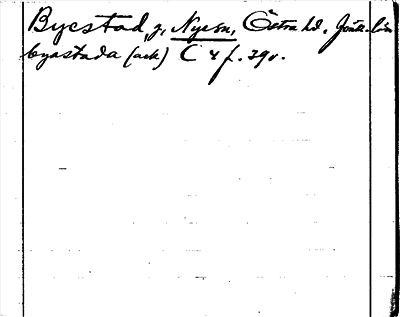 Byestad, g, Nyeds, Östra hd, Jönk. län
byastada (ack) C 4 f. 39v.